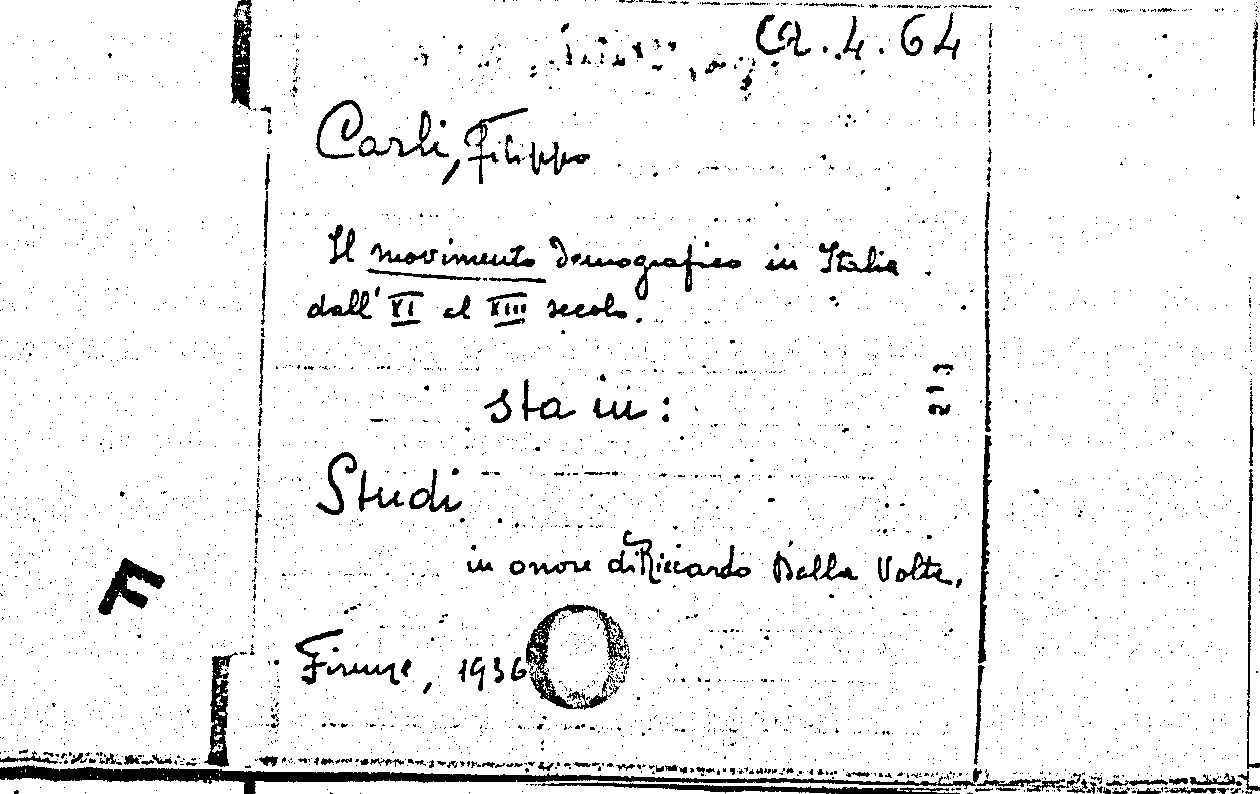 CA.4.64
Carli, Filippo
Il movimento demografico in Italia
dall' XI al XIII secolo.
sta in:
213
Studi
in onore di Riccardo Dalla Volta.
F
Firenze, 1936